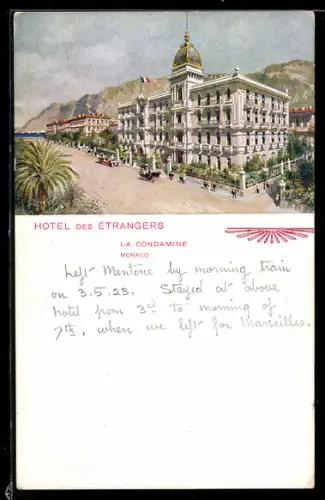 HOTEL DES ÉTRANGERS
LA CONDAMINE
MONACO
Left Mentone by morning train
on 3.5.23. Stayed at above
hotel from 3rd to morning of
7th, when we left for Marseilles.